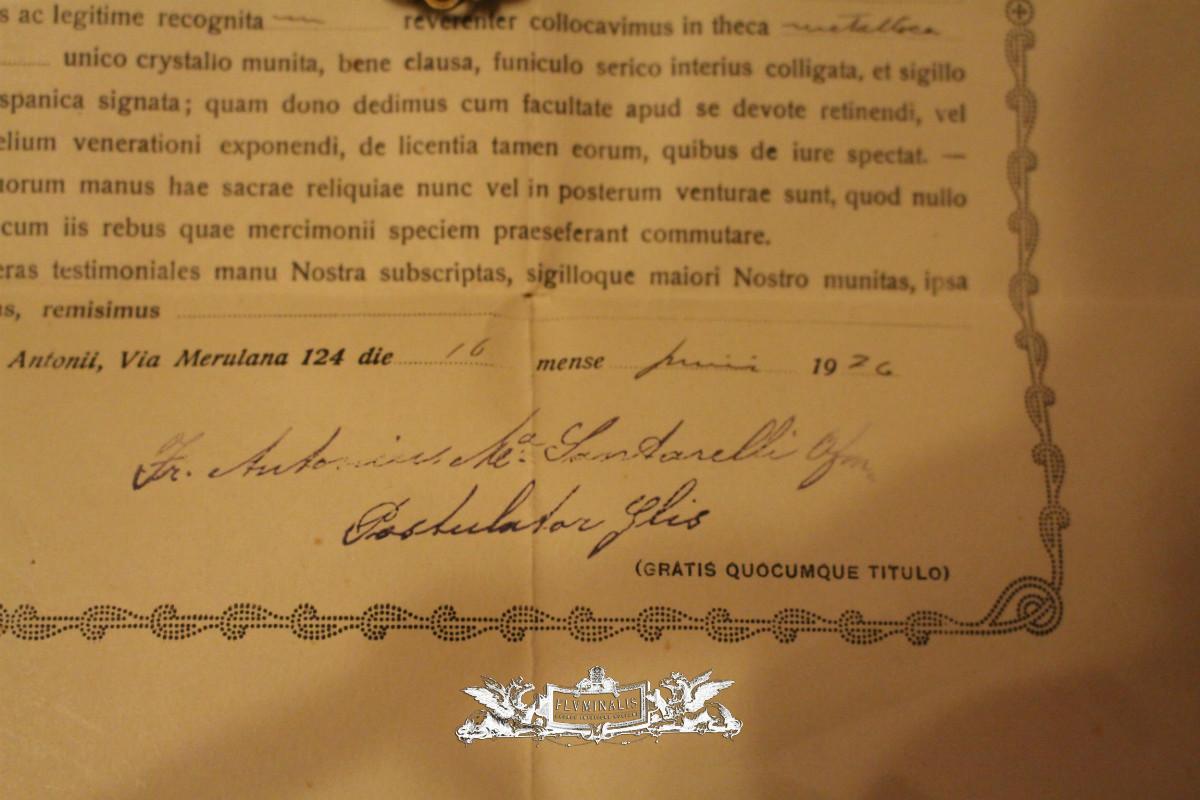 s ac legitime recognita reverenter collocavimus in theca metallica
unico crystallo munita, bene clausa, funiculo serico interius colligata, et sigillo
spanica signata; quam dono dedimus cum facultate apud se devote retinendi, vel
elium venerationi exponendi, de licentia tamen eorum, quibus de iure spectat. —
uorum manus hae sacrae reliquiae nunc vel in posterum venturae sunt, quod nullo
cum iis rebus quae mercimonii speciem praeseferant commutare.
eras testimoniales manu Nostra subscriptas, sigilloque maiori Nostro munitas, ipsa
s, remisimus
Antonii, Via Merulana 124 die 16 mense junii 1926
Fr. Antonius Mª. Santarelli Ofm
Postulator Glis
(GRATIS QUOCUMQUE TITULO)
FLVMINALIS